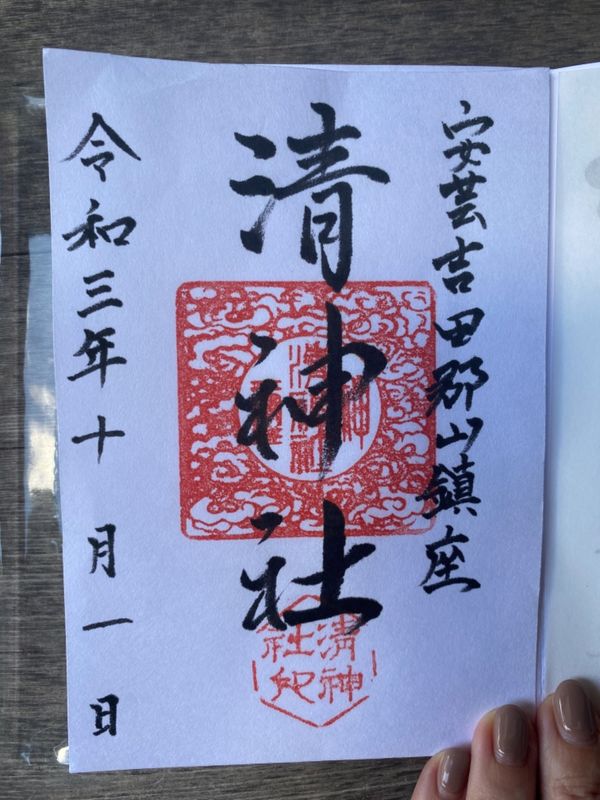 安芸吉田郡山鎮座
清神社
令和三年十月一日
清神
社印